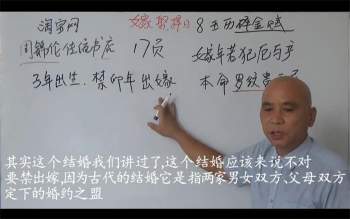 淘宝网
嫁娶择日
8五历碎金赋
周锦伦住信书店
17员
嫁年若犯厄与
3年出生.禁卯年出嫁
本命男
其实这个结婚我们讲过了,这个结婚应该来说不对
要禁出嫁,因为古代的结婚它是指两家男女双方,父母双方
定下的婚约之盟